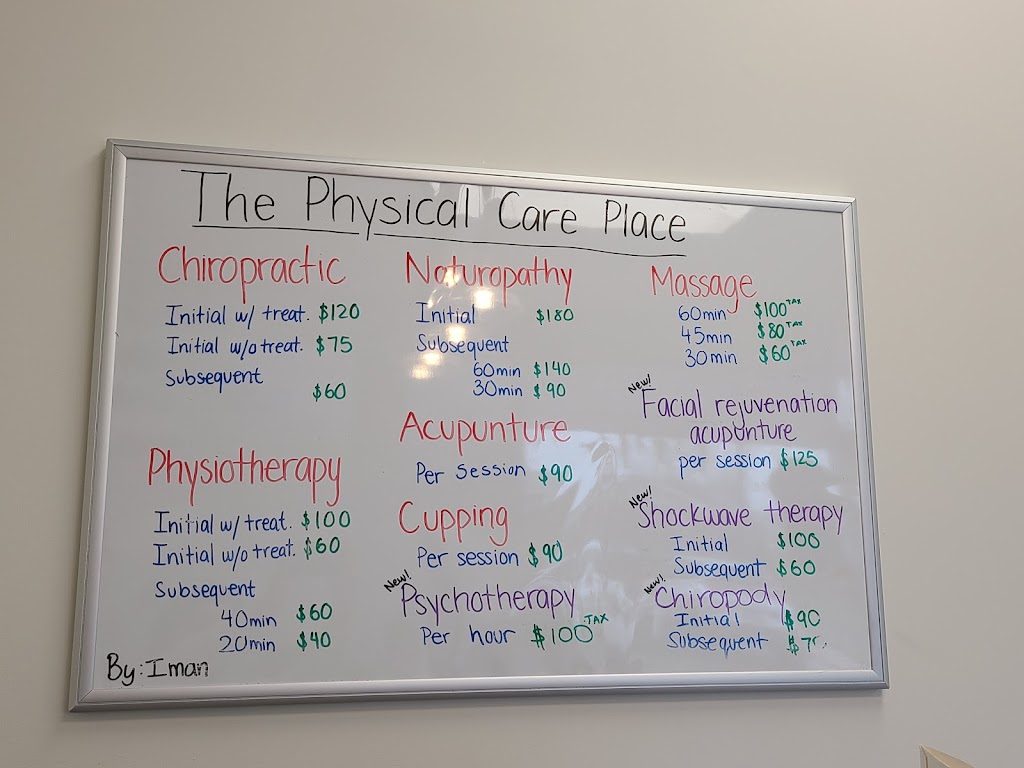 The Physical Care Place
Chiropractic
Initial w/ treat. $120
Initial w/o treat. $75
Subsequent
$60
Physiotherapy
Initial w/ treat. $100
Initial w/o treat. $60
Subsequent
40min $60
20min $40
By: Iman
Naturopathy
Initial $180
Subsequent
60min $140
30min $90
Acupunture
Per Session $90
Cupping
Per session $90
New!
Psychotherapy
Per hour $100 TAX
Massage
60min $100 TAX
45min $80 TAX
30min $60 TAX
New!
Facial rejuvenation
acupunture
per session $125
New!
Shockwave therapy
Initial $100
Subsequent $60
New!
Chiropody
Initial $90
Subsequent